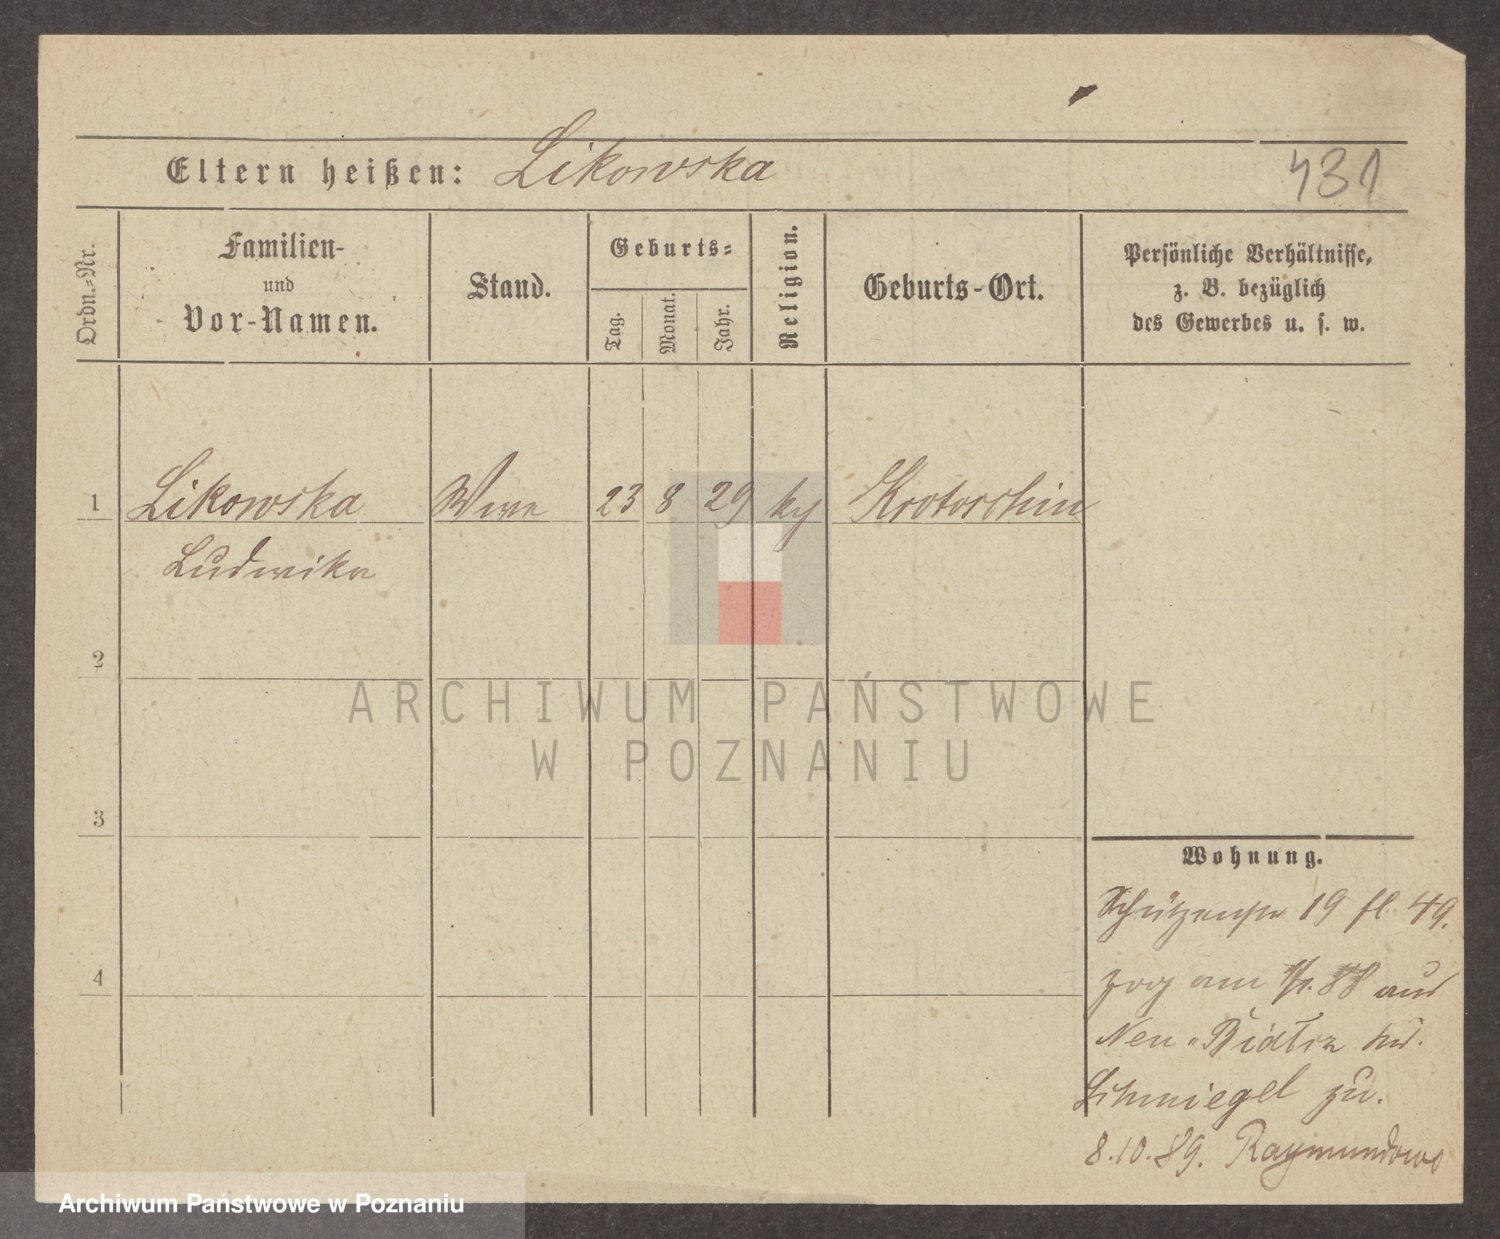 Eltern heißen: Likowska
431
Ordn.-Nr.
Familien-
und
Vor-Namen.
Stand.
Geburts-
Tag.
Monat.
Jahr.
Religion.
Geburts-Ort.
Persönliche Verhältnisse,
z. B. bezüglich
des Gewerbes u. s. w.
1 Likowska Wwe 23 8 29 kŋ Krotoschin
Ludwika
2
3
4
Wohnung.
Schützenstr 19 fl. 49.
zog am 88 aus
Neu-
Schmiegel zu.
8.10.89. Raymundowo
ARCHIWUM PAŃSTWOWE
W POZNANIU
Archiwum Państwowe w Poznaniu